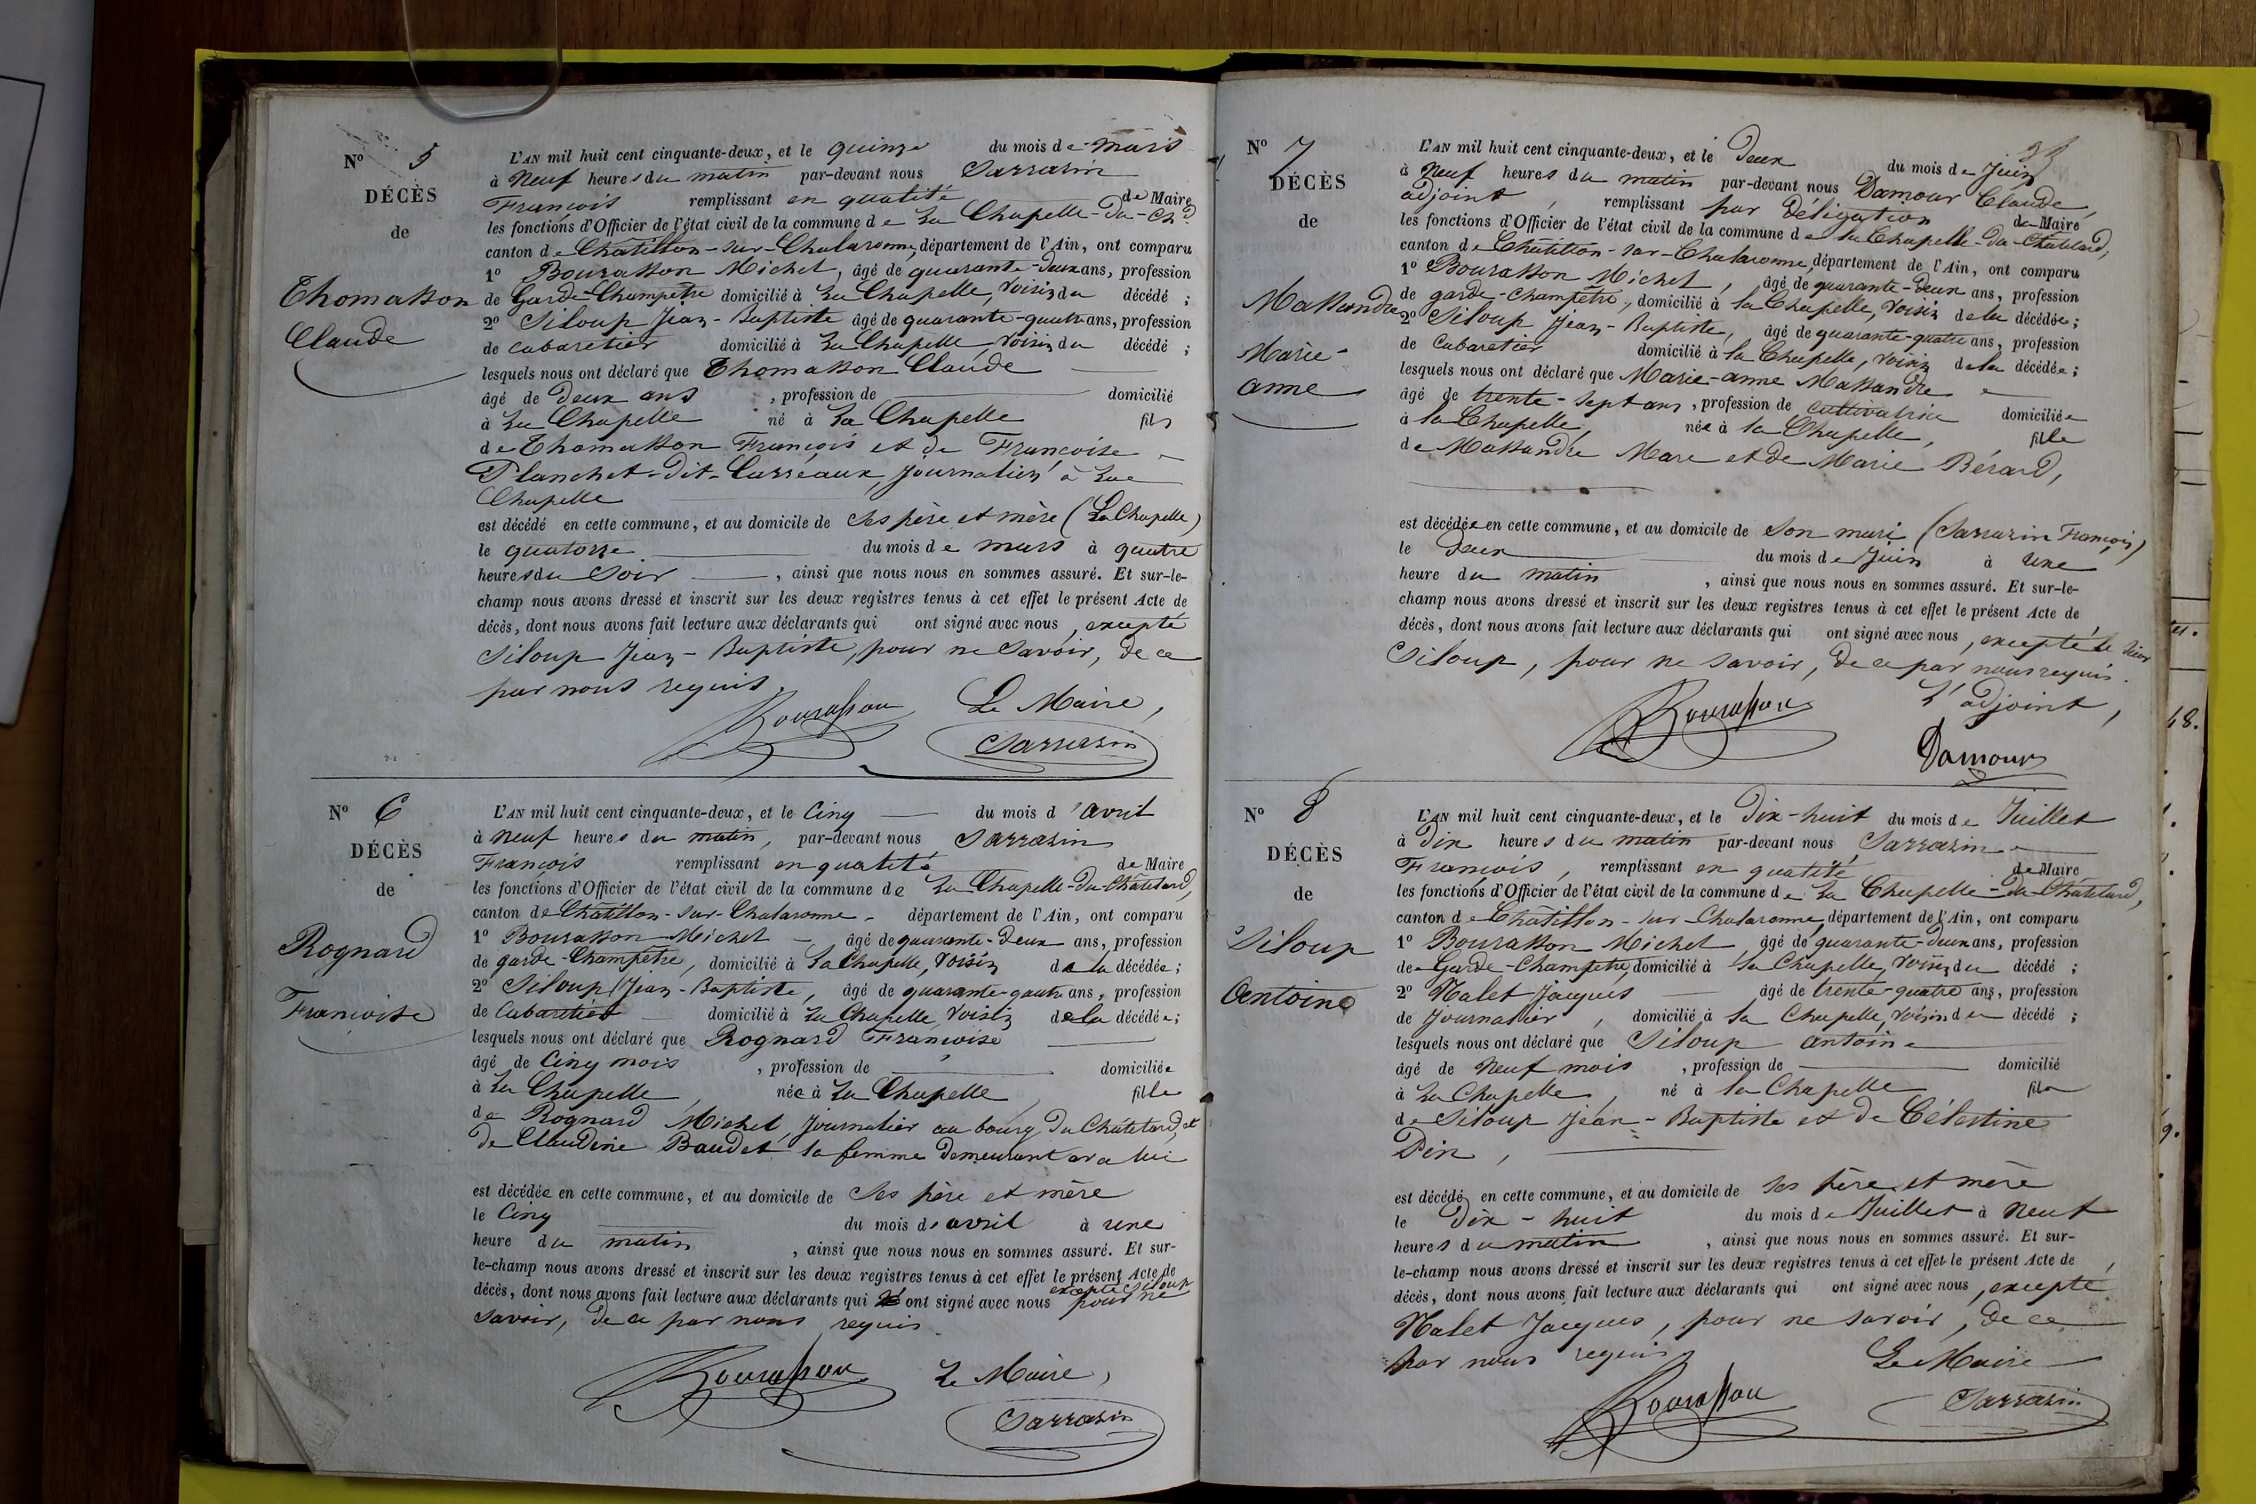 Nº 5
DÉCÈS
de
Thomasson
Claude
L'AN mil huit cent cinquante-deux, et le quinze du mois de mars
à neuf heures du matin par-devant nous Sarrasin
François remplissant en qualité de Maire
les fonctions d'Officier de l'état civil de la commune de La Chapelle-du-Chd
canton de Châtillon-sur-Chalaronne, département de l'Ain, ont comparu
1º Bourasson Michel, âgé de quarante-deux ans, profession
de Garde-Champêtre domicilié à La Chapelle, voisin du décédé ;
2º Siloup Jean-Baptiste âgé de quarante-quatre ans, profession
de cabaretier domicilié à La Chapelle, voisin du décédé ;
lesquels nous ont déclaré que Thomasson Claude
âgé de deux ans , profession de domicilié
à La Chapelle né à La Chapelle fils
de Thomasson François et de Françoise
Planchet-dit-Carreaux, journaliers à La
Chapelle
est décédé en cette commune, et au domicile de ses père et mère (La Chapelle)
le quatorze du mois de mars à quatre
heures du soir , ainsi que nous nous en sommes assuré. Et sur-le-
champ nous avons dressé et inscrit sur les deux registres tenus à cet effet le présent Acte de
décès, dont nous avons fait lecture aux déclarants qui ont signé avec nous, excepté
Siloup Jean-Baptiste, pour ne savoir, de ce
par nous requis.
Bourasson Le Maire,
Sarrasin
Nº 6
DÉCÈS
de
Rognard
Françoise
L'AN mil huit cent cinquante-deux, et le cinq du mois d'avril
à neuf heures du matin, par-devant nous Sarrasin
François remplissant en qualité de Maire
les fonctions d'Officier de l'état civil de la commune de La Chapelle-du-Châtelard,
canton de Châtillon-sur-Chalaronne - département de l'Ain, ont comparu
1º Bourasson Michel - âgé de quarante-deux ans, profession
de garde-Champêtre, domicilié à La Chapelle, voisin de la décédée ;
2º Siloup Jean-Baptiste, âgé de quarante-quatre ans, profession
de Cabaretier domicilié à La Chapelle, voisin de la décédée ;
lesquels nous ont déclaré que Rognard Françoise
âgé de cinq mois , profession de domiciliée
à La Chapelle née à La Chapelle fille
de Rognard Michel, journalier au bourg du Châtelard, et
de Claudine Baudet sa femme demeurant avec lui
est décédée en cette commune, et au domicile de ses père et mère
le cinq du mois d'avril à une
heure du matin , ainsi que nous nous en sommes assuré. Et sur-
le-champ nous avons dressé et inscrit sur les deux registres tenus à cet effet le présent Acte de
excepté Siloup
décès, dont nous avons fait lecture aux déclarants qui ont signé avec nous pour ne
savoir, de ce par nous requis.
Bourasson Le Maire,
Sarrasin
Nº 7
DÉCÈS
de
Massandre
Marie-
anne
L'AN mil huit cent cinquante-deux, et le deux du mois de Juin
à neuf heures du matin par-devant nous Damour Claude,
adjoint, remplissant par déligation de Maire
les fonctions d'Officier de l'état civil de la commune de la Chapelle-du-Châtelard,
canton de Châtillon-sur-Chalaronne, département de l'Ain, ont comparu
1º Bourasson Michel, âgé de quarante-deux ans, profession
de garde-champêtre, domicilié à la Chapelle, voisin de la décédée ;
2º Siloup Jean-Baptiste, âgé de quarante-quatre ans, profession
de Cabaretier domicilié à la Chapelle, voisin de la décédée ;
lesquels nous ont déclaré que Marie-anne Massandre
âgé de trente-sept ans, profession de cultivatrice domiciliée
à la Chapelle, née à la Chapelle, fille
de Massandre Marc et de Marie Bérard,
est décédée en cette commune, et au domicile de son mari (Sarrasin François)
le deux du mois de Juin à une
heure du matin , ainsi que nous nous en sommes assuré. Et sur-le-
champ nous avons dressé et inscrit sur les deux registres tenus à cet effet le présent Acte de
décès, dont nous avons fait lecture aux déclarants qui ont signé avec nous, excepté le sieur
Siloup, pour ne savoir, de ce par nous requis.
Bourasson L'adjoint,
Damour
Nº 8
DÉCÈS
de
Siloup
Antoine
L'AN mil huit cent cinquante-deux, et le dix-huit du mois de Juillet
à dix heures du matin par-devant nous Sarrasin
François, remplissant en qualité de Maire
les fonctions d'Officier de l'état civil de la commune de La Chapelle-du-Châtelard,
canton de Châtillon-sur-Chalaronne, département de l'Ain, ont comparu
1º Bourasson Michel âgé de quarante-deux ans, profession
de Garde-Champêtre, domicilié à la Chapelle, voisin du décédé ;
2º Malet Jacques âgé de trente-quatre ans, profession
de journalier, domicilié à la Chapelle, voisin du décédé ;
lesquels nous ont déclaré que Siloup antoine
âgé de neuf mois , profession de domicilié
à La Chapelle, né à la Chapelle fils
de Siloup Jean-Baptiste et de Célestine
Pin,
est décédé en cette commune, et au domicile de ses père et mère
le dix-huit du mois de Juillet à neuf
heures du matin , ainsi que nous nous en sommes assuré. Et sur-
le-champ nous avons dressé et inscrit sur les deux registres tenus à cet effet le présent Acte de
décès, dont nous avons fait lecture aux déclarants qui ont signé avec nous, excepté
Malet Jacques, pour ne savoir, de ce
par nous requis.
Bourasson Le Maire
Sarrasin